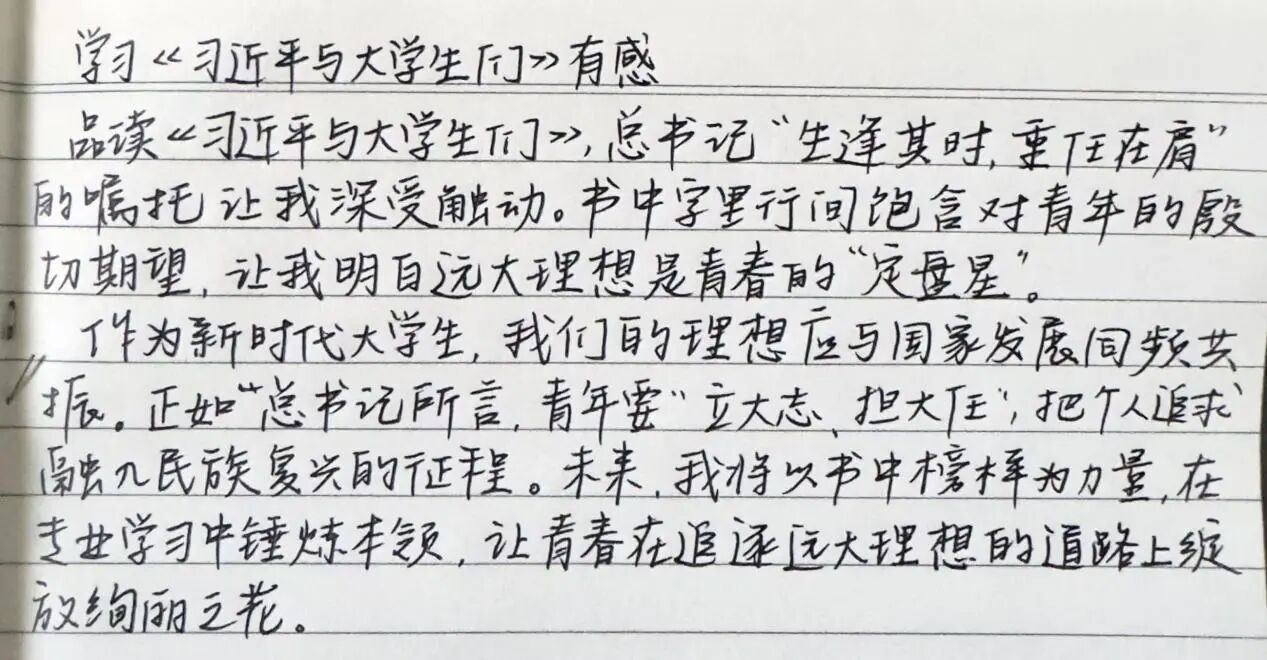 学习《习近平与大学生们》有感
品读《习近平与大学生们》,总书记“生逢其时,重任在肩”
的嘱托让我深受触动。书中字里行间饱含对青年的殷
切期望,让我明白远大理想是青春的“定盘星”。
作为新时代大学生,我们的理想应与国家发展同频共
振。正如“总书记所言,青年要“立大志、担大任”,把个人追求
融入民族复兴的征程。未来,我将以书中榜样为力量,在
专业学习中锤炼本领,让青春在追逐远大理想的道路上绽
放绚丽之花。